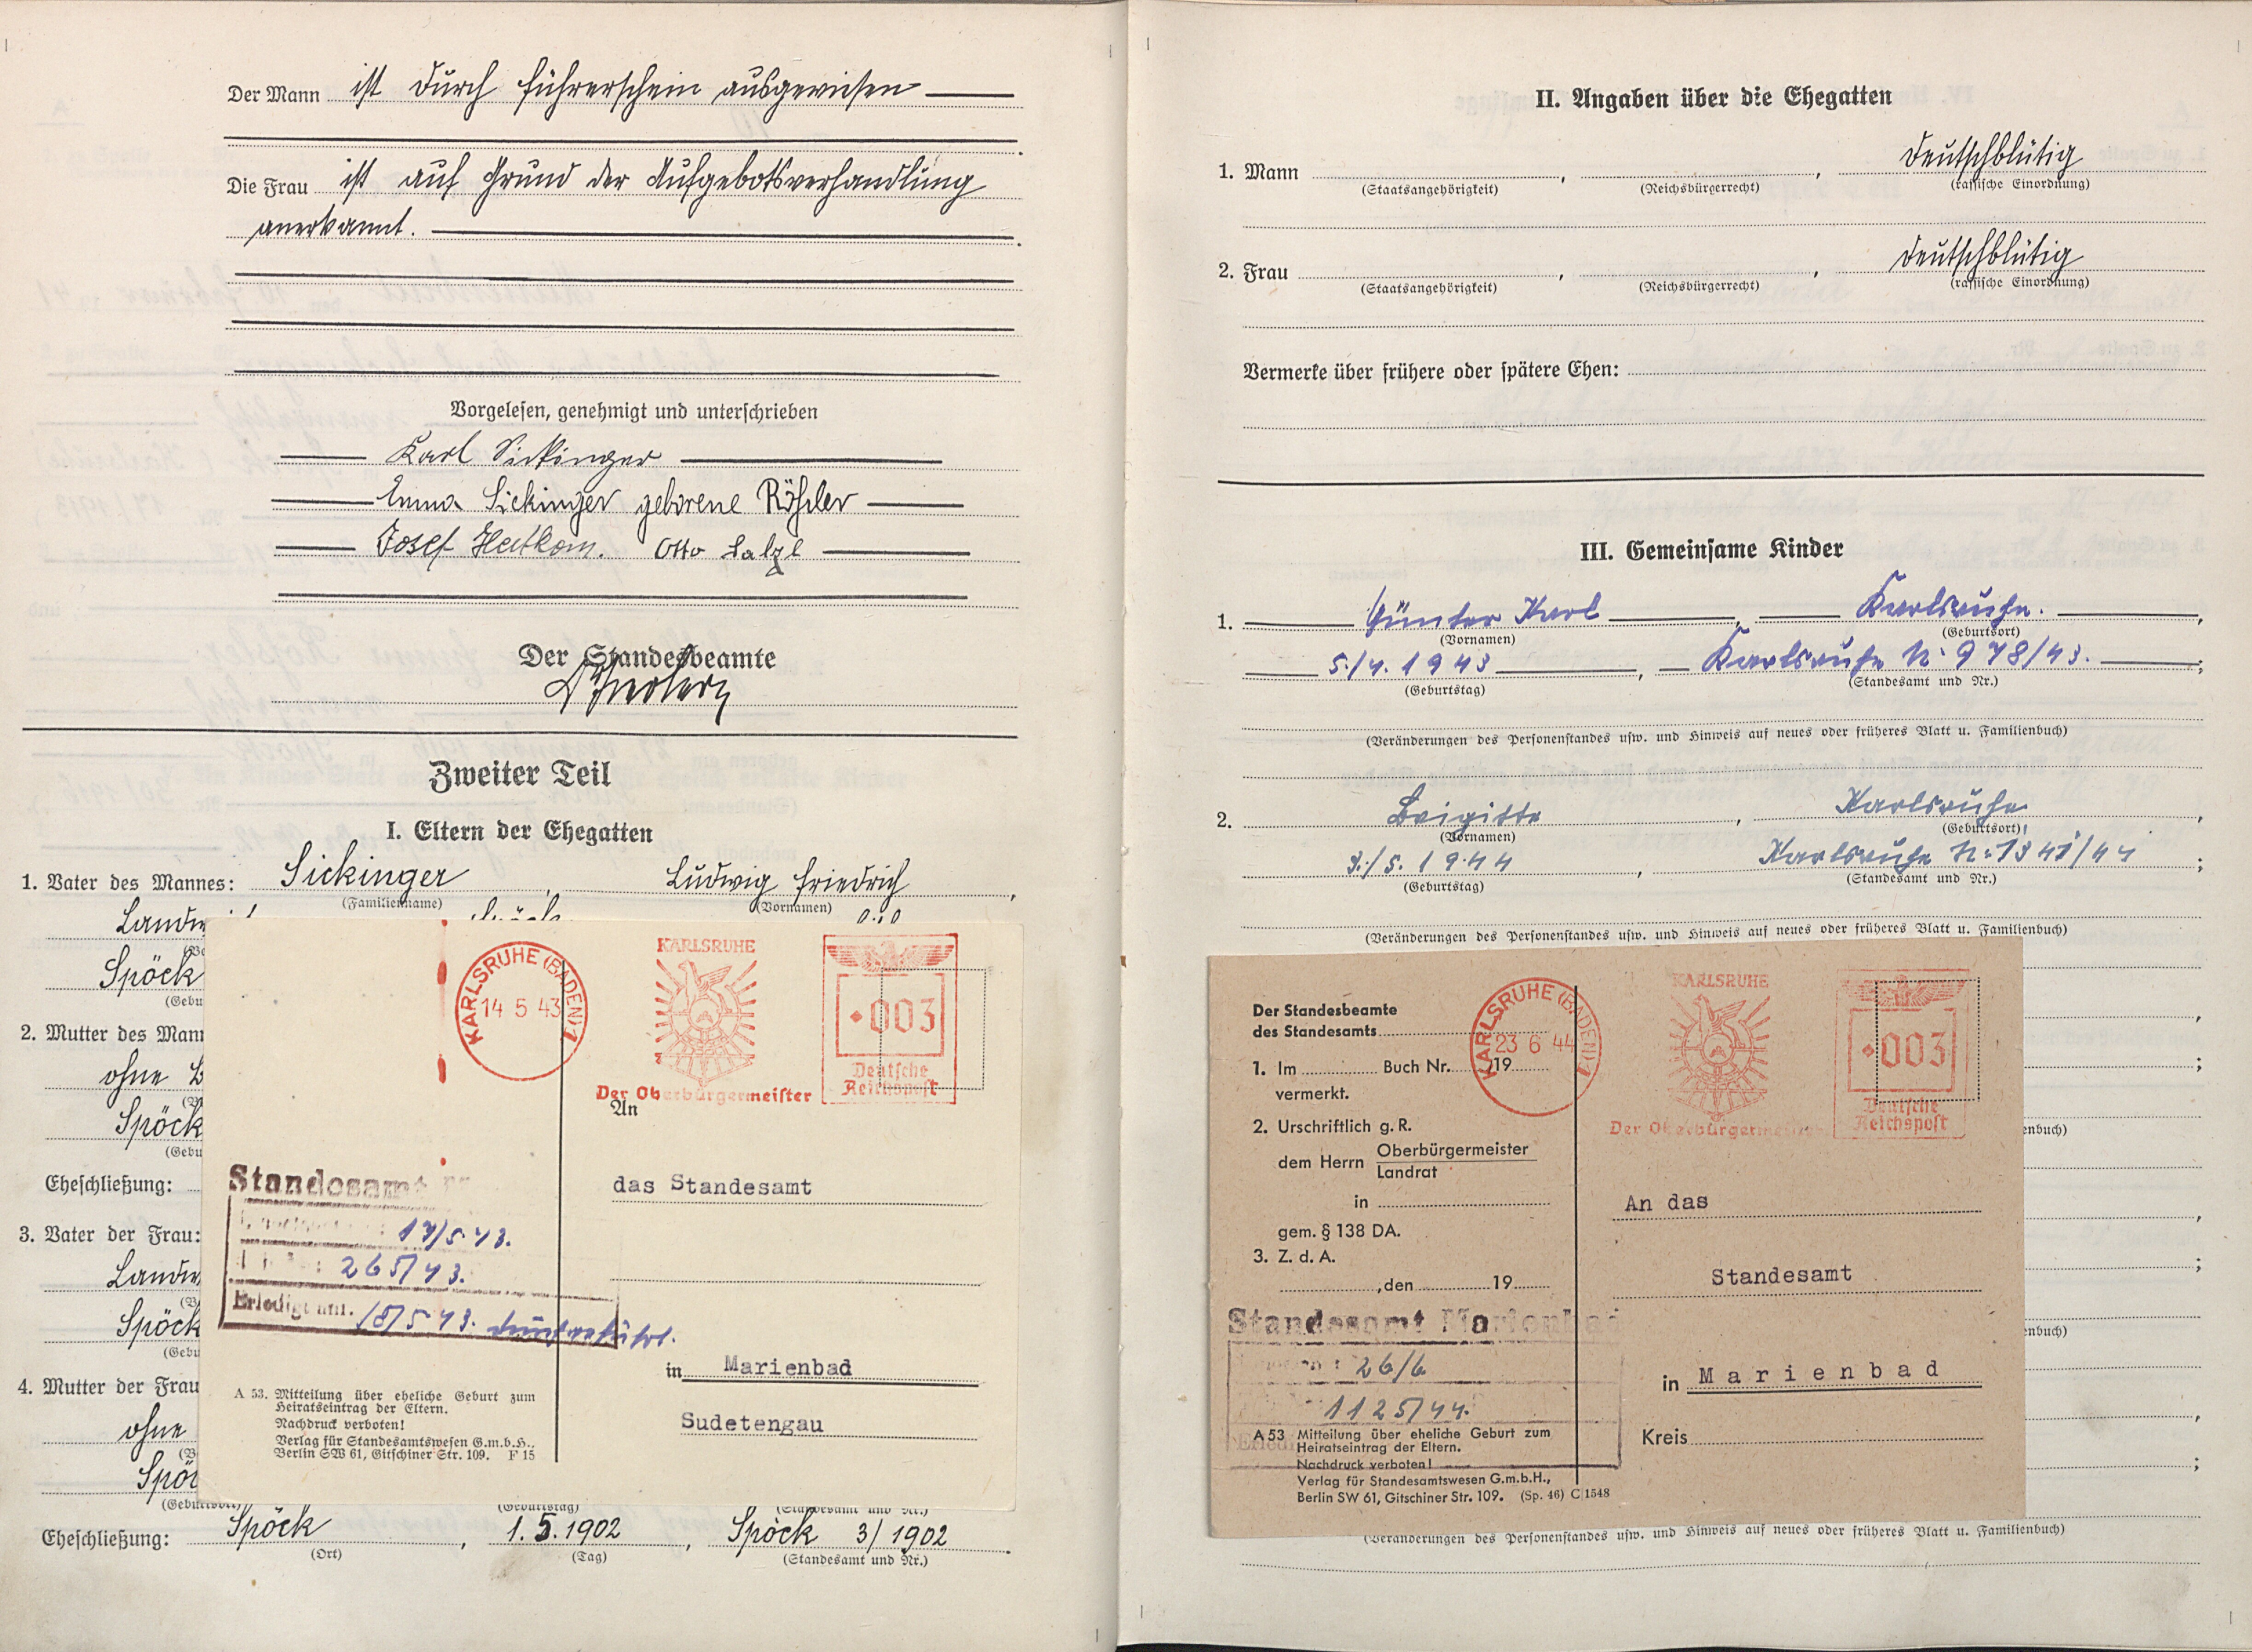 Der Mann ist durch Führerschein ausgewiesen
Die Frau ist auf Grund der Aufgebotsverhandlung
anerkannt.
Vorgelesen, genehmigt und unterschrieben
Karl Sickinger
Emma Sickinger geborene Rößler
Josef Otto
Der Standesbeamte
Zweiter Teil
I. Eltern der Ehegatten
1. Vater des Mannes: Sickinger, Ludwig Friedrich,
(Familienname) (Vornamen)
Spöck
2. Mutter des
ohne
Spöck
Eheschließung:
3. Vater der Frau:
Spöck
4. Mutter der Frau
ohne
(Geburtsort) (Geburtstag) (Standesamt und Nr.)
Eheschließung: Spöck, 1.5.1902, Spöck 3/1902.
(Ort) (Tag) (Standesamt und Nr.)
KARLSRUHE (BADEN) 1
14 5 43
KARLSRUHE
Der Oberbürgermeister
003
Deutsche
Reichspost
An
das Standesamt
in Marienbad
Sudetengau
Standesamt
17/5.43.
265/43.
Erledigt am: 18/5 43. durchgeführt.
A 53. Mitteilung über eheliche Geburt zum
Heiratseintrag der Eltern.
Nachdruck verboten!
Verlag für Standesamtswesen G.m.b.H.,
Berlin SW 61, Gitschiner Str. 109. F 15
II. Angaben über die Ehegatten
1. Mann , , deutschblütig
(Staatsangehörigkeit) (Reichsbürgerrecht) (rassische Einordnung)
2. Frau , , deutschblütig
(Staatsangehörigkeit) (Reichsbürgerrecht) (rassische Einordnung)
Vermerke über frühere oder spätere Ehen:
III. Gemeinsame Kinder
1. Günter Karl, Karlsruhe.,
(Vornamen) (Geburtsort)
5./4. 1943, Karlsruhe N: 978/43.;
(Geburtstag) (Standesamt und Nr.)
(Veränderungen des Personenstandes usw. und Hinweis auf neues oder früheres Blatt u. Familienbuch)
2. Brigitte, Karlsruhe,
(Vornamen) (Geburtsort)
3./5. 1944, Karlsruhe N: 1341/44;
(Geburtstag) (Standesamt und Nr.)
(Veränderungen des Personenstandes usw. und Hinweis auf neues oder früheres Blatt u. Familienbuch)
Der Standesbeamte
des Standesamts
1. Im Buch Nr. 19
vermerkt.
2. Urschriftlich g. R.
dem Herrn Oberbürgermeister
Landrat
in
gem. § 138 DA.
3. Z. d. A.
, den 19
KARLSRUHE (BADEN) 1
23 6 44
KARLSRUHE
Der Oberbürgermeister
003
Deutsche
Reichspost
An das
Standesamt
in Marienbad
Kreis
Standesamt Marienbad
26/6
1125/44.
A 53 Mitteilung über eheliche Geburt zum
Heiratseintrag der Eltern.
Nachdruck verboten!
Verlag für Standesamtswesen G.m.b.H.,
Berlin SW 61, Gitschiner Str. 109. (Sp. 46) C 1548
(Veränderungen des Personenstandes usw. und Hinweis auf neues oder früheres Blatt u. Familienbuch)